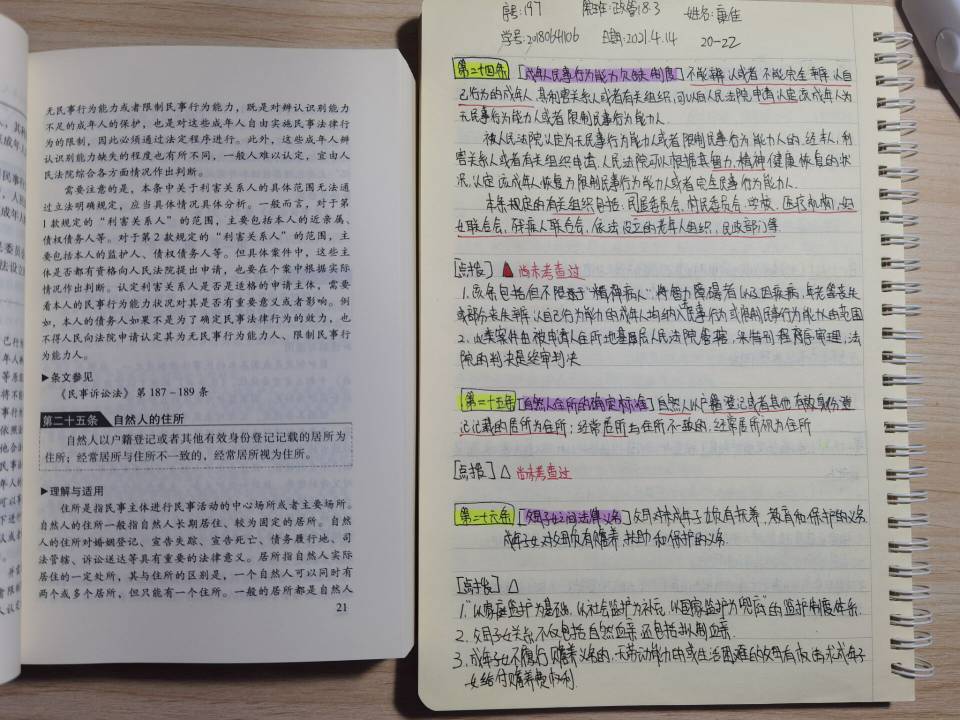 无民事行为能力或者限制民事行为能力，既是对辨认识别能力
不足的成年人的保护，也是对这些成年人自由实施民事法律行
为的限制，因此必须通过法定程序进行。此外，这些成年人辨
认识别能力缺失的程度也有所不同，一般人难以认定，宜由人
民法院综合各方面情况作出判断。
需要注意的是，本条中关于利害关系人的具体范围无法通
过立法明确规定，应当具体情况具体分析。一般而言，对于第
1款规定的“利害关系人”的范围，主要包括本人的近亲属、
债权债务人等。对于第2款规定的“利害关系人”的范围，主
要包括本人的监护人、债权债务人等。但具体案件中，这些主
体是否都有资格向人民法院提出申请，也要在个案中根据实际
情况作出判断。认定利害关系人是否是适格的申请主体，需要
看本人的民事行为能力状况对其是否有重要意义或者影响。例
如，本人的债务人如果不是为了确定民事法律行为的效力，也
不得人民向法院申请认定其为无民事行为能力人、限制民事行
为能力人。
▶条文参见
《民事诉讼法》第187－189条
第二十五条 自然人的住所
自然人以户籍登记或者其他有效身份登记记载的居所为
住所；经常居所与住所不一致的，经常居所视为住所。
▶理解与适用
住所是指民事主体进行民事活动的中心场所或者主要场所。
自然人的住所一般指自然人长期居住、较为固定的居所。自然
人的住所对婚姻登记、宣告失踪、宣告死亡、债务履行地、司
法管辖、诉讼送达等具有重要的法律意义。居所指自然人实际
居住的一定处所，其与住所的区别是，一个自然人可以同时有
两个或多个居所，但只能有一个住所。一般的居所都是自然人
21
序号:197 班:政管18.3 姓名:康佳
学号:2018064106 日期:2021.4.14 20-22
第二十四条 [成年人民事行为能力欠缺制度] 不能辨认或者不能完全辨认自
己行为的成年人，其利害关系人或者有关组织，可以向人民法院申请认定该成年人为
无民事行为能力人或者限制民事行为能力人.
被人民法院认定为无民事行为能力人或者限制民事行为能力人的，经本人,利
害关系人或者有关组织申请,人民法院可以根据其智力,精神健康恢复的状
况,认定该成年人恢复为限制民事行为能力人或者完全民事行为能力人.
本条规定的有关组织包括:居民委员会,村民委员会,学校、医疗机构,妇
女联合会,残疾人联合会,依法设立的老年人组织,民政部门等.
[点拨] ▲尚未考查过
1.该条包括但不限于“精神病人”,将智力障碍者以及因疾病,年老等丧失
或部分丧失辨认自己行为能力的成年人均纳入无民事行为或限制民事行为能力人的范围
2.此类案件由被申请人住所地基层人民法院管辖,采特别程序审理,法
院的判决是终审判决
第二十五条 [自然人住所的确定标准] 自然人以户籍登记或者其他有效身份登
记记载的居所为住所；经常居所与住所不一致的,经常居所视为住所
[点拨] △ 尚未考查过
第二十六条 [父母子女之间法律义务] 父母对未成年子女负有抚养,教育和保护的义务.
成年子女对父母负有赡养,扶助和保护的义务.
[点拨] △
1.“以家庭监护为基础,以社会监护为补充,以国家监护为兜底”的监护制度体系.
2.父母子女关系不仅包括自然血亲还包括拟制血亲.
3.成年子女不履行赡养义务的,无劳动能力的或生活困难的父母有权请求成年子
女给付赡养费的权利.